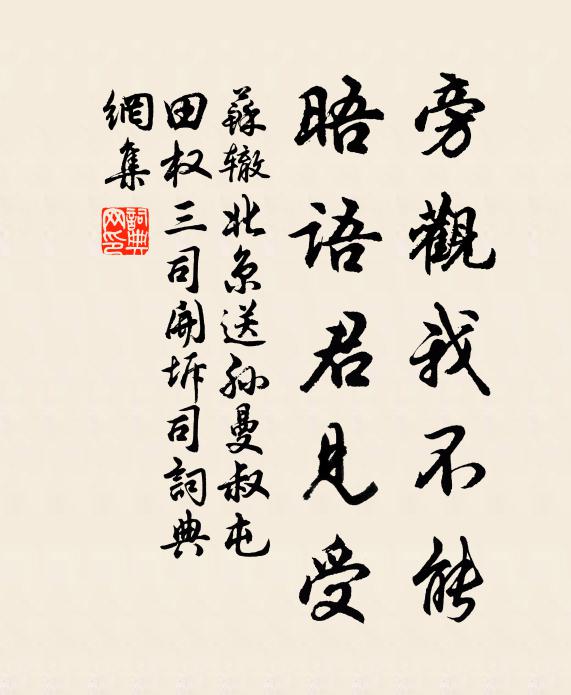 旁觀我不能
晤語君見受
蘇轍北京送孫曼叔屯
田权三司開坼司詞典
網集
詞典网印